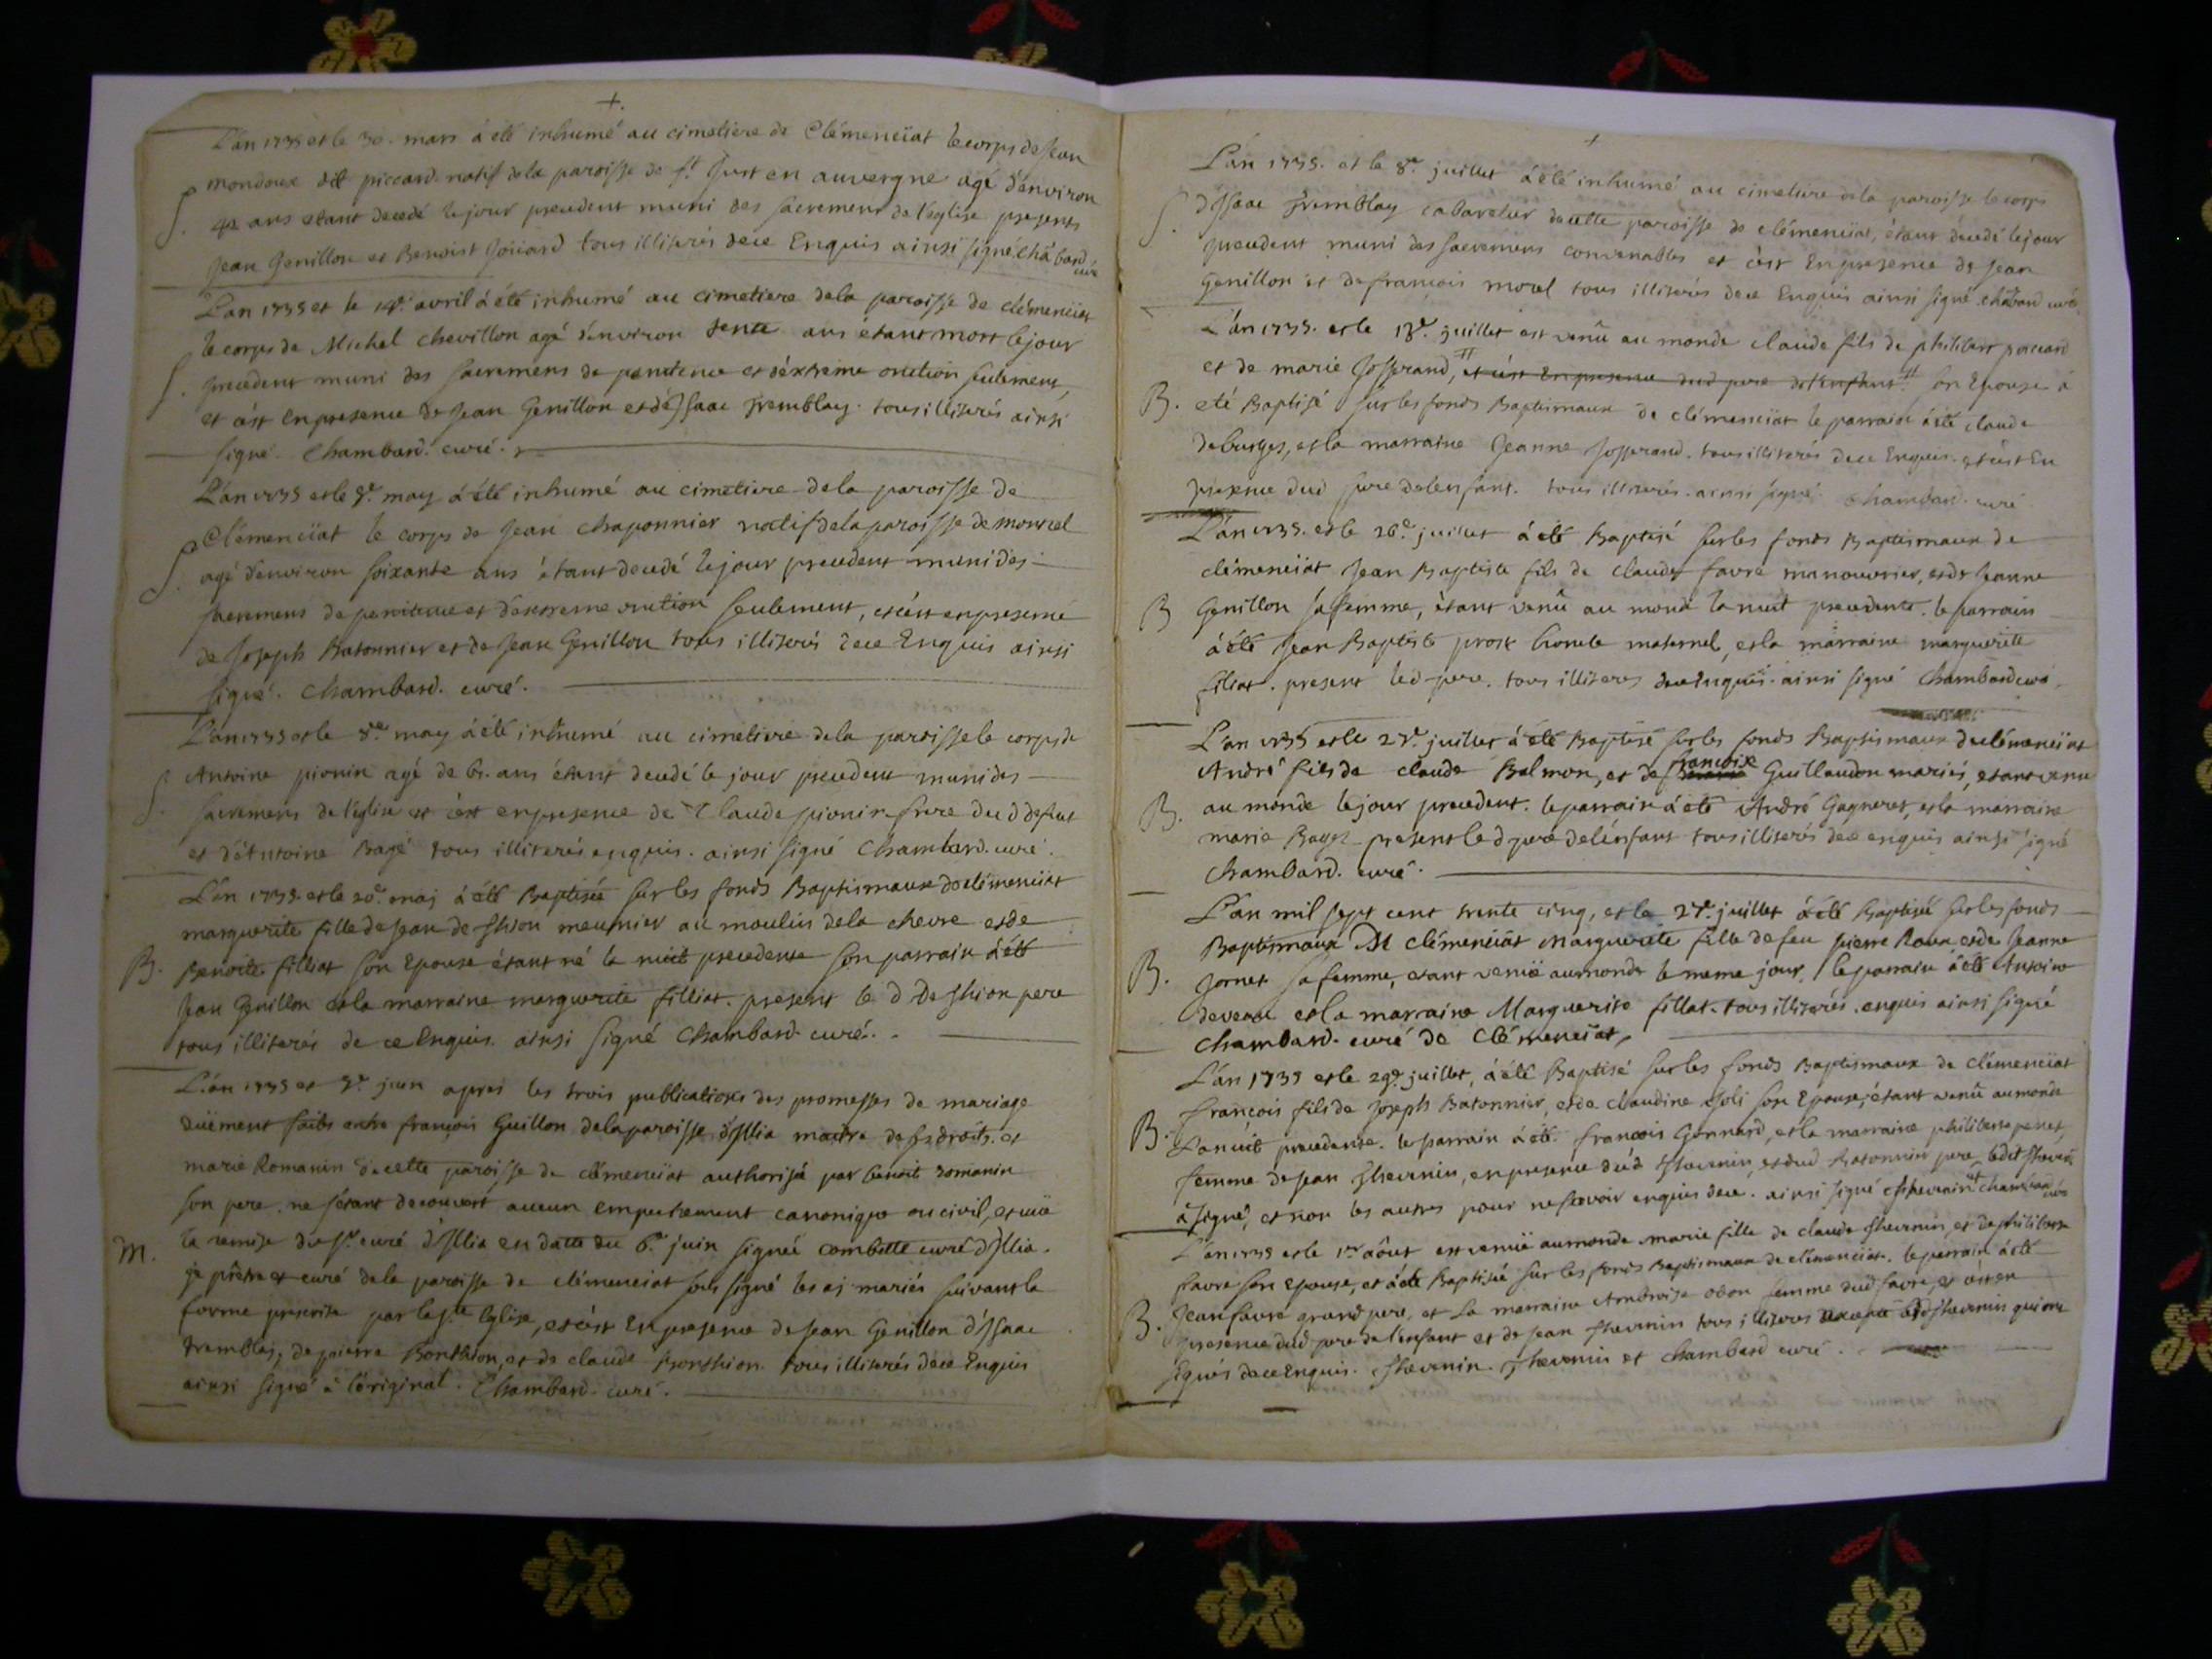 +.
L'an 1735 et le 30. mars a été inhumé au cimetiere de Clémenciat le corps de Jean
mondoux dit piccard. natif de la paroisse de st Just en auvergne agé d'environ
S. 42 ans etant decedé le jour precedent muni des sacremens de l'eglise presents
Jean Genillon et Benoist Joüard tous illiterés de ce Enquis ainsi signé. Chābard curé
L'an 1735 et le 14e. avril a été inhumé au cimetiere de la paroisse de clémenciat
le corps de Michel chevillon agé d'environ trente ans étant mort le jour
S. precedent muni des sacremens de penitence et d'extreme onction seulement,
et c'est en presence de Jean Genillon et d'éJsaac Tremblay. tous illiterés ainsi
signé. Chambard. curé.
L'an 1735 et le 3e. may a été inhumé au cimetiere de la paroisse de
Clémenciat le corps de Jean chaponnier natif de la paroisse de monrel
S. agé d'environ soixante ans étant decedé le jour precedent muni des
sacremens de penitence et d'extreme onction seulement, et c'est en presence
de Joseph Batonnier et de Jean Genillon tous illiterés de ce Enquis ainsi
signé. Chambard. curé.
L'an 1735 et le 8e. may a été inhumé au cimetiere de la paroisse le corps de
S. Antoine pionin agé de 61. ans étant decedé le jour precedent muni des
sacremens de l'eglise et c'est en presence de Claude pionin frere dud defunt
et d'Antoine Bagé tous illiterés enquis. ainsi signé Chambard. curé.
L'an 1735. et le 20e. maj a été Baptisée sur les fonds Baptismaux de clémenciat
marguerite fille de Jean de thion meunier au moulin de la chevre et de
B. Benoite filliat son Epouse étant né la nuit precedente son parrain a été
Jean Genillon et la marraine marguerite filliat. present le d De thion pere
tous illiterés de ce Enquis. ainsi signé Chambard curé.
L'an 1735 et 7e. juin apres les trois publications des promesses de mariage
düement faites entre françois Guillon de la paroisse d'Jllia maitre de ses droits. et
marie Romanin de cette paroisse de clémenciat authorisée par benoit romanin
son pere. ne s'étant decouvert aucun empechement canonique ou civil, et vüe
M. la remise du sr. curé d'Jllia en datte du 6e. juin signée combette curé d'Jllia.
je prêtre et curé de la paroisse de clémenciat sous signé les aj mariés suivant la
forme prescrite par la ste Eglise, et c'est En presence de Jean Genillon d'Jsaac
tremblaj, de pierre Bonthion, et de claude Bonthion. tous illiterés de ce Enquis
ainsi signé a l'original. Chambard. curé.
+
L'an 1735. et le 8e. juillet a été inhumé au cimetiere de la paroisse le corps
S. d'Jsaac Tremblay cabaretier de cette paroisse de clémenciat, étant décedé le jour
precedent muni des sacremens convenables et c'est En presence de Jean
Genillon et de francois morel tous illiterés de ce Enquis ainsi signé. Chābard curé.
L'an 1735. et le 13e. juillet est venû au monde claude fils de philibert
et de marie Josserand, # et c'est En presence dud pere de l'enfant # son Epouse a
B. eté Baptisé sur les fonds Baptismaux de clémenciat le parrain a été claude
deburges, et la marraine Jeanne Josserand. tous illiterés de ce Enquis. et c'est En
presence dud pere de l'enfant. tous illiterés. ainsi signé. Chambard. curé
L'an 1735. et le 26e. juillet a été Baptisé sur les fonds Baptismaux de
clémenciat Jean Baptiste fils de claude favre manouvrier, et de Jeanne
B Genillon sa femme, étant venû au monde la nuit precedente. le parrain
a été Jean Baptiste prost l'honcle maternel, et la marraine marguerite
filiat. present led pere. tous illiteres de ce Enquis. ainsi signé Chambard curé.
L'an 1735 et le 27e. juillet a été Baptisé sur les fonds Baptismaux de clémenciat
André fils de claude Balmon, et de francoise Guillaudon mariés, etant venu
B. au monde le jour precedent. le parrain a été André Gagneret, et la marraine
marie present le d pere de l'enfant tous illiterés de ce enquis ainsi signé
Chambard. curé.
L'an mil sept cent trente cinq, et le 27e. juillet a été Baptisée sur les fonds
Baptismaux de clémenciat Marguerite fille de feu pierre Roux et de Jeanne
B. Jornet sa femme, etant venüe au monde le meme jour, le parrain a été Antoine
deveau et la marraine Marguerite fillat. tous illiterés. enquis ainsi signé
Chambard. curé de Clémenciat.
L'an 1735 et le 29e. juillet, a été Baptisé sur les fonds Baptismaux de clémenciat
françois fils de Joseph Batonnier, et de claudine Joli son Epouse, étant venû au monde
B. la nuit precedente. le parrain a été francois Gonnard, et la marraine philiberte penet,
femme de Jean thevenin, en presence du'd thevenin, et dud Batonnier pere, led thevenin
a signé, et non les autres pour ne sçavoir enquis de ce. ainsi signé thevenin et chambard curé
L'an 1735 et le 1er aôust est venüe au monde marie fille de claude thevenin, et de philiberte
favre son Epouse, et a été Baptisée sur les fonds Baptismaux de clémenciat. le parrain a été
B. Jean favre grand pere, et la marraine Ambroise odon femme dud favre, et c'est en
presence dud pere de l'enfant et de Jean thevenin tous illiteres excepté lesd thevenin qui ont
signés de ce Enquis. Thevenin Thevenin et chambard curé.